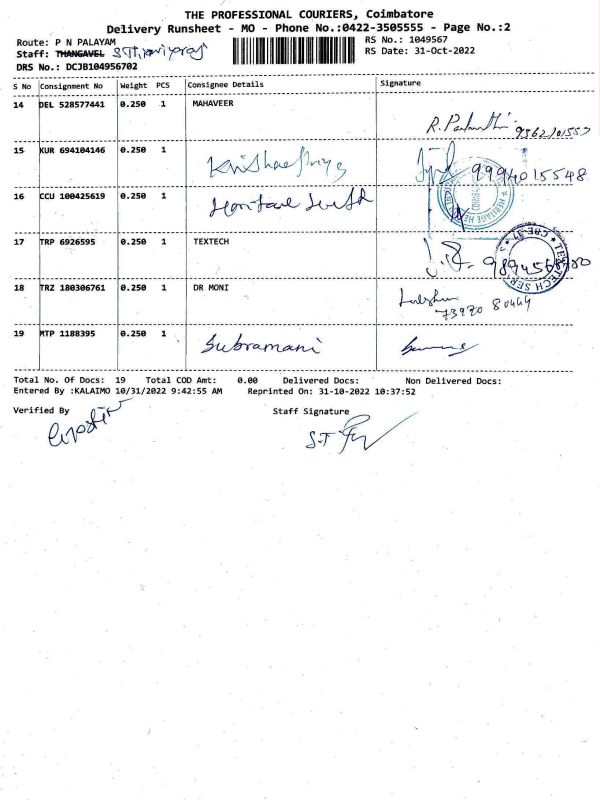 THE PROFESSIONAL COURIERS, Coimbatore
Delivery Runsheet - MO - Phone No.:0422-3505555 - Page No.:2
Route: P N PALAYAM
RS No.: 1049567
Staff: THANGAVEL
RS Date: 31-Oct-2022
DRS No.: DCJB104956702
S No Consignment No Weight PCS Consignee Details Signature
14 DEL 528577441 0.250 1 MAHAVEER
15 KUR 694104146 0.250 1 9994015548
16 CCU 100425619 0.250 1
17 TRP 6926595 0.250 1 TEXTECH
18 TRZ 180306761 0.250 1 DR MONI
73970 80449
19 MTP 1188395 0.250 1 Subramani
Total No. Of Docs: 19 Total COD Amt: 0.00 Delivered Docs: Non Delivered Docs:
Entered By :KALAIMO 10/31/2022 9:42:55 AM Reprinted On: 31-10-2022 10:37:52
Verified By Staff Signature